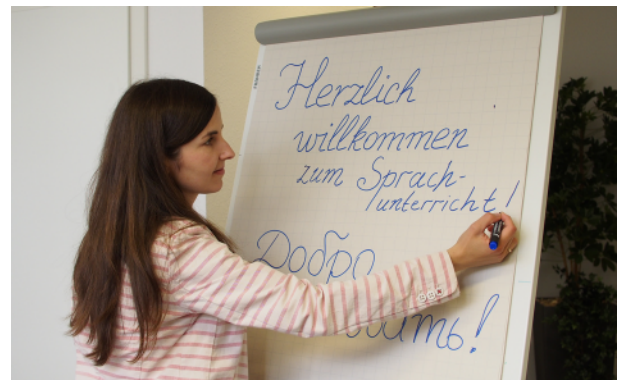 Herzlich
willkommen
zum Sprach-
unterricht!
Добро